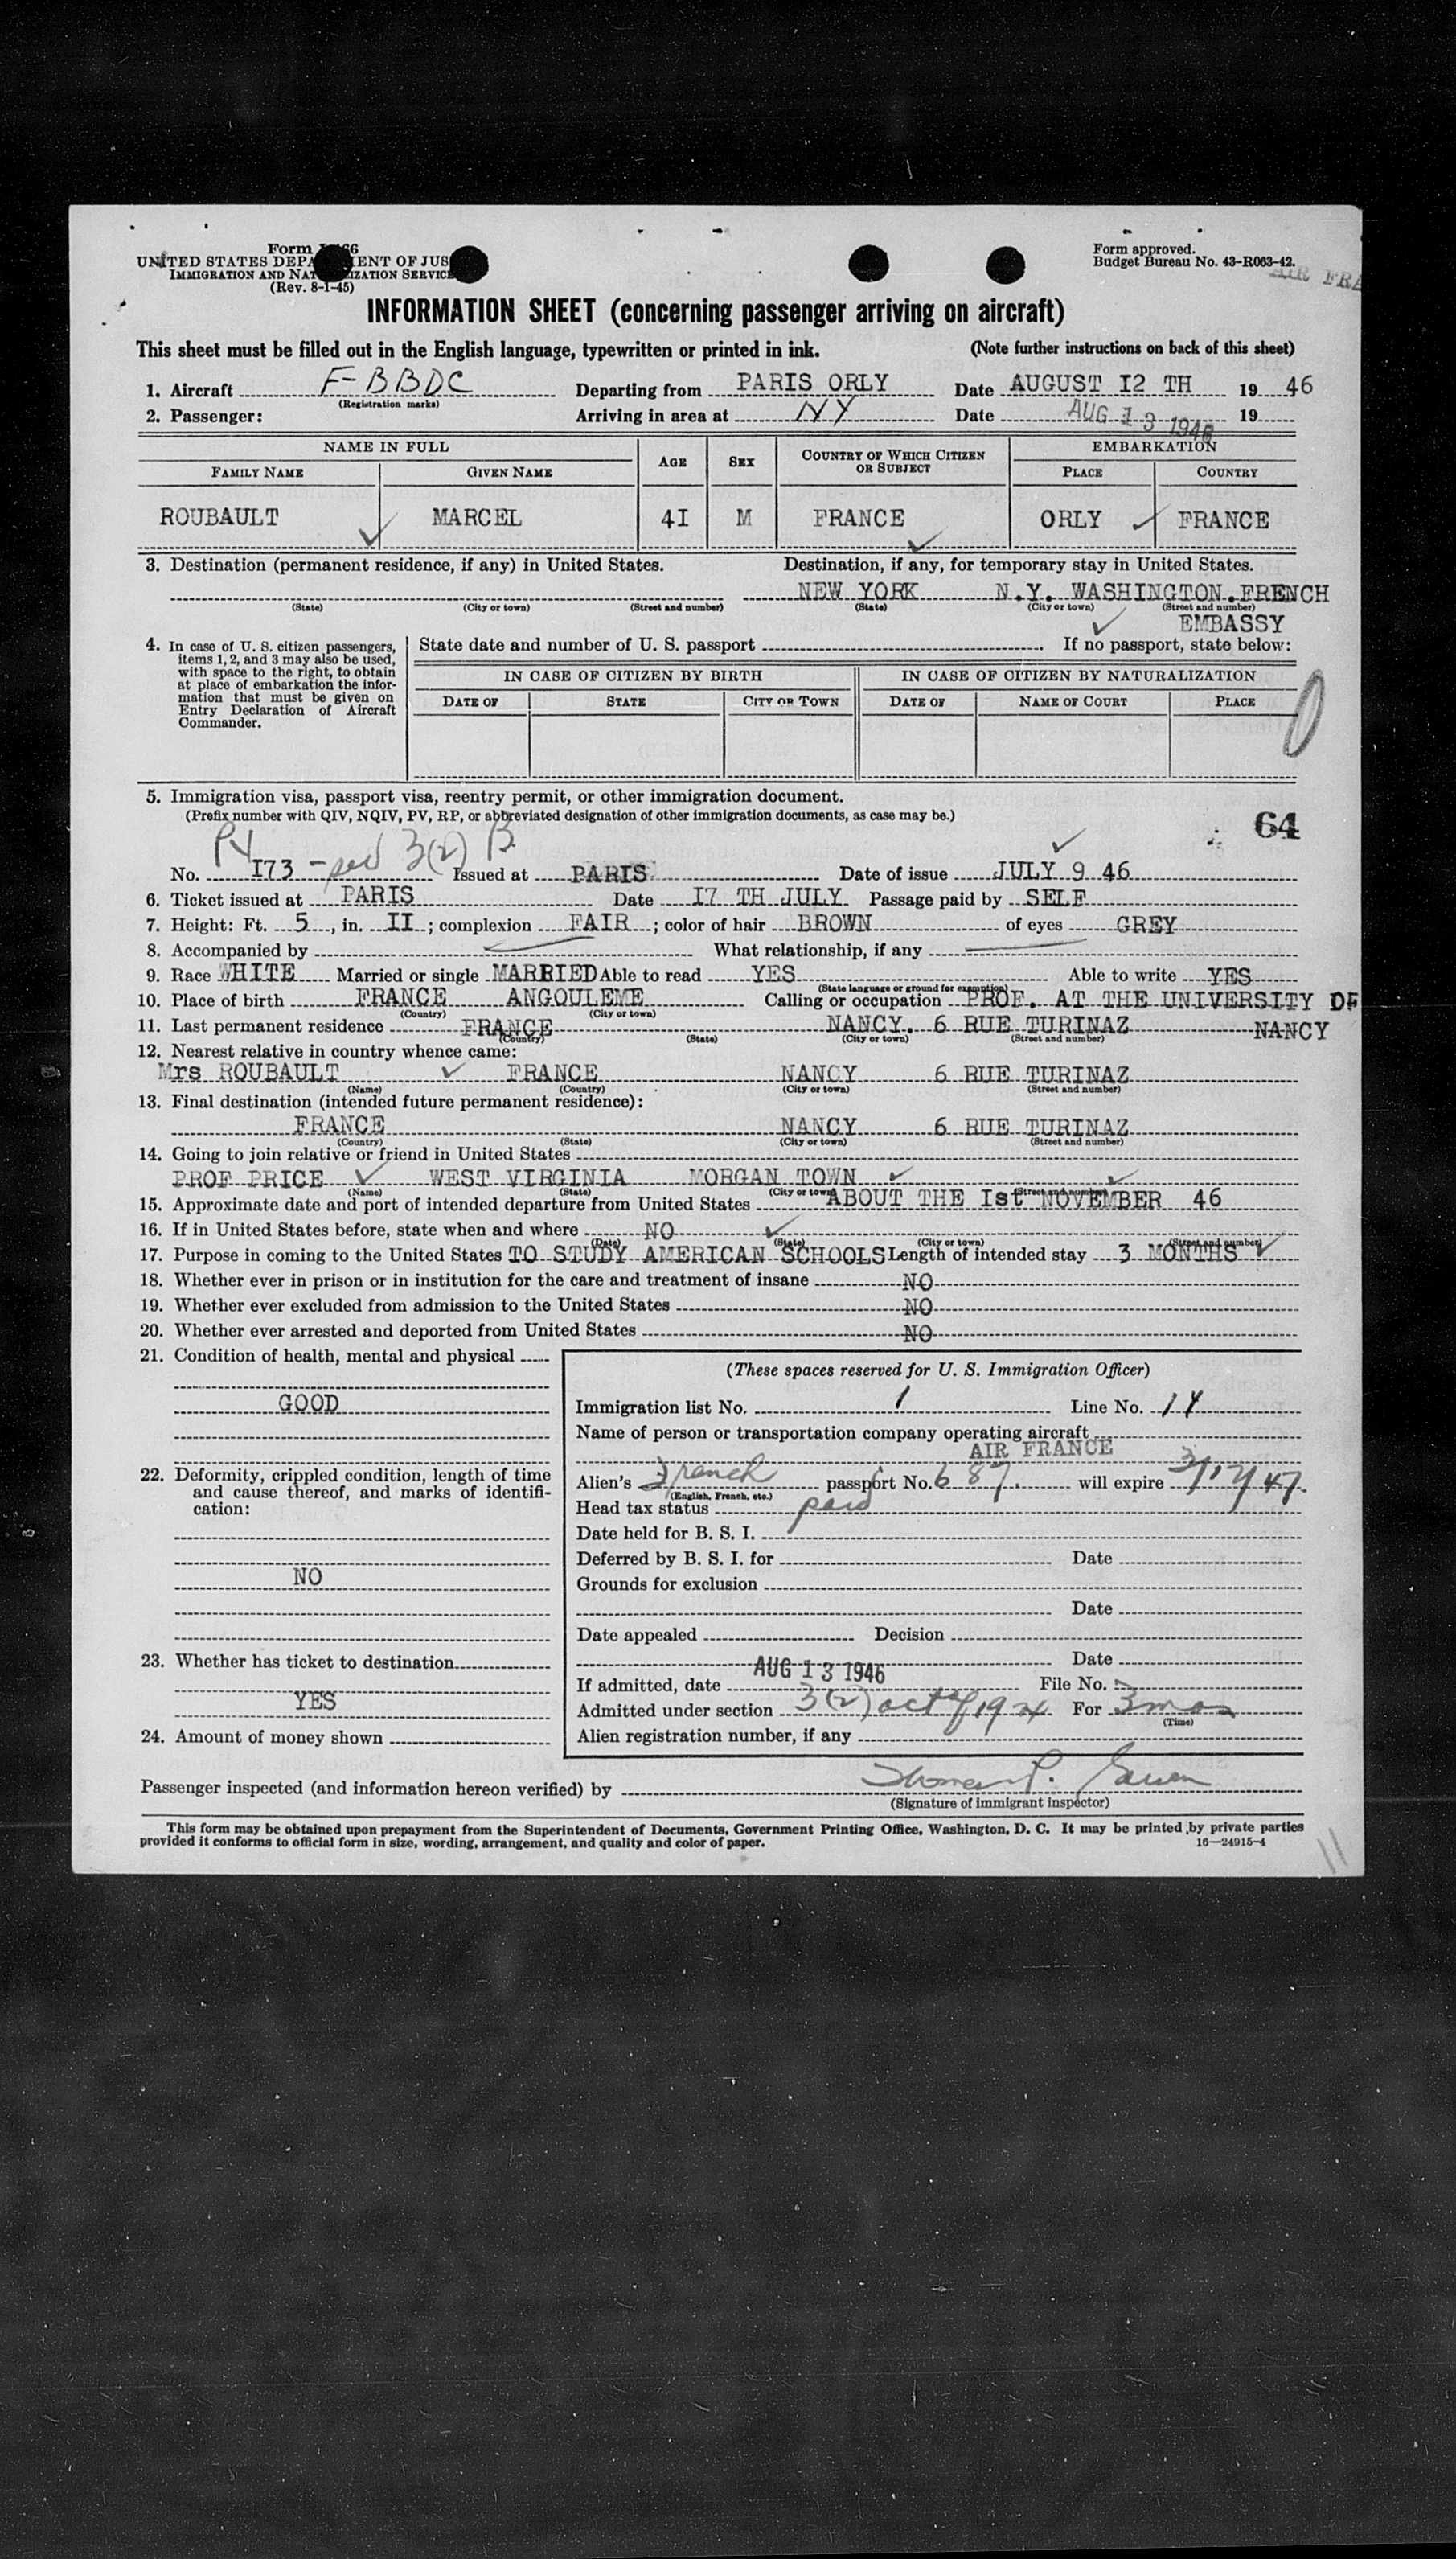 Form I 66
UNITED STATES DEPA ENT OF JUS
IMMIGRATION AND NAT IZATION SERVICE
(Rev. 8-1-45)
Form approved.
Budget Bureau No. 43-R063-42.
AIR FRA
INFORMATION SHEET (concerning passenger arriving on aircraft)
This sheet must be filled out in the English language, typewritten or printed in ink. (Note further instructions on back of this sheet)
1. Aircraft F-BBDC Departing from PARIS ORLY Date AUGUST I2 TH 19 46
(Registration marks)
2. Passenger: Arriving in area at NY Date AUG 13 1946 19
NAME IN FULL AGE SEX COUNTRY OF WHICH CITIZEN OR SUBJECT EMBARKATION
FAMILY NAME GIVEN NAME PLACE COUNTRY
ROUBAULT MARCEL 4I M FRANCE ORLY FRANCE
3. Destination (permanent residence, if any) in United States. Destination, if any, for temporary stay in United States.
NEW YORK N.Y. WASHINGTON.FRENCH
(State) (City or town) (Street and number) (State) (City or town) (Street and number)
EMBASSY
4. In case of U. S. citizen passengers,
items 1, 2, and 3 may also be used,
with space to the right, to obtain
at place of embarkation the infor-
mation that must be given on
Entry Declaration of Aircraft
Commander.
State date and number of U. S. passport If no passport, state below:
IN CASE OF CITIZEN BY BIRTH IN CASE OF CITIZEN BY NATURALIZATION
DATE OF STATE CITY OR TOWN DATE OF NAME OF COURT PLACE
5. Immigration visa, passport visa, reentry permit, or other immigration document.
(Prefix number with QIV, NQIV, PV, RP, or abbreviated designation of other immigration documents, as case may be.)
64
PV 3(2) B
No. I73 Issued at PARIS Date of issue JULY 9 46
6. Ticket issued at PARIS Date I7 TH JULY Passage paid by SELF
7. Height: Ft. 5, in. II; complexion FAIR; color of hair BROWN of eyes GREY
8. Accompanied by What relationship, if any
9. Race WHITE Married or single MARRIED Able to read YES Able to write YES
(State language or ground for exemption)
10. Place of birth FRANCE ANGOULEME Calling or occupation PROF. AT THE UNIVERSITY OF
(Country) (City or town)
11. Last permanent residence FRANCE NANCY. 6 RUE TURINAZ NANCY
(Country) (State) (City or town) (Street and number)
12. Nearest relative in country whence came:
Mrs ROUBAULT FRANCE NANCY 6 RUE TURINAZ
(Name) (Country) (City or town) (Street and number)
13. Final destination (intended future permanent residence):
FRANCE NANCY 6 RUE TURINAZ
(Country) (State) (City or town) (Street and number)
14. Going to join relative or friend in United States
PROF PRICE WEST VIRGINIA MORGAN TOWN
(Name) (State) (City or town) (Street and number)
15. Approximate date and port of intended departure from United States ABOUT THE Ist NOVEMBER 46
16. If in United States before, state when and where NO
(Date) (State) (City or town) (Street and number)
17. Purpose in coming to the United States TO STUDY AMERICAN SCHOOLS Length of intended stay 3 MONTHS
18. Whether ever in prison or in institution for the care and treatment of insane NO
19. Whether ever excluded from admission to the United States NO
20. Whether ever arrested and deported from United States NO
21. Condition of health, mental and physical
GOOD
22. Deformity, crippled condition, length of time
and cause thereof, and marks of identifi-
cation:
NO
23. Whether has ticket to destination
YES
24. Amount of money shown
(These spaces reserved for U. S. Immigration Officer)
Immigration list No. 1 Line No. 14
Name of person or transportation company operating aircraft
AIR FRANCE
Alien's French passport No. 687. will expire 3/17/47.
(English, French, etc.)
Head tax status paid
Date held for B. S. I.
Deferred by B. S. I. for Date
Grounds for exclusion
Date
Date appealed Decision
Date
If admitted, date AUG 13 1946 File No.
Admitted under section 3(2) act of 1924 For 3 mos
(Time)
Alien registration number, if any
Passenger inspected (and information hereon verified) by
(Signature of immigrant inspector)
This form may be obtained upon prepayment from the Superintendent of Documents, Government Printing Office, Washington, D. C. It may be printed by private parties
provided it conforms to official form in size, wording, arrangement, and quality and color of paper.
16—24915-4
11